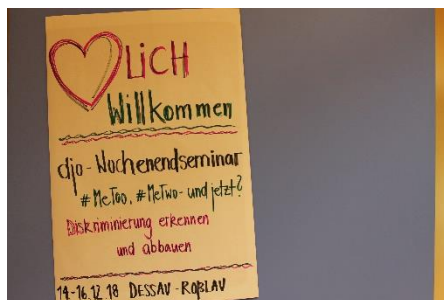 LiCH
Willkommen
djo-Wochenendseminar
#MeToo, #MeTwo-und jetzt?
Diskriminierung erkennen
und abbauen
14-16.12.18 DESSAU-ROßLAU